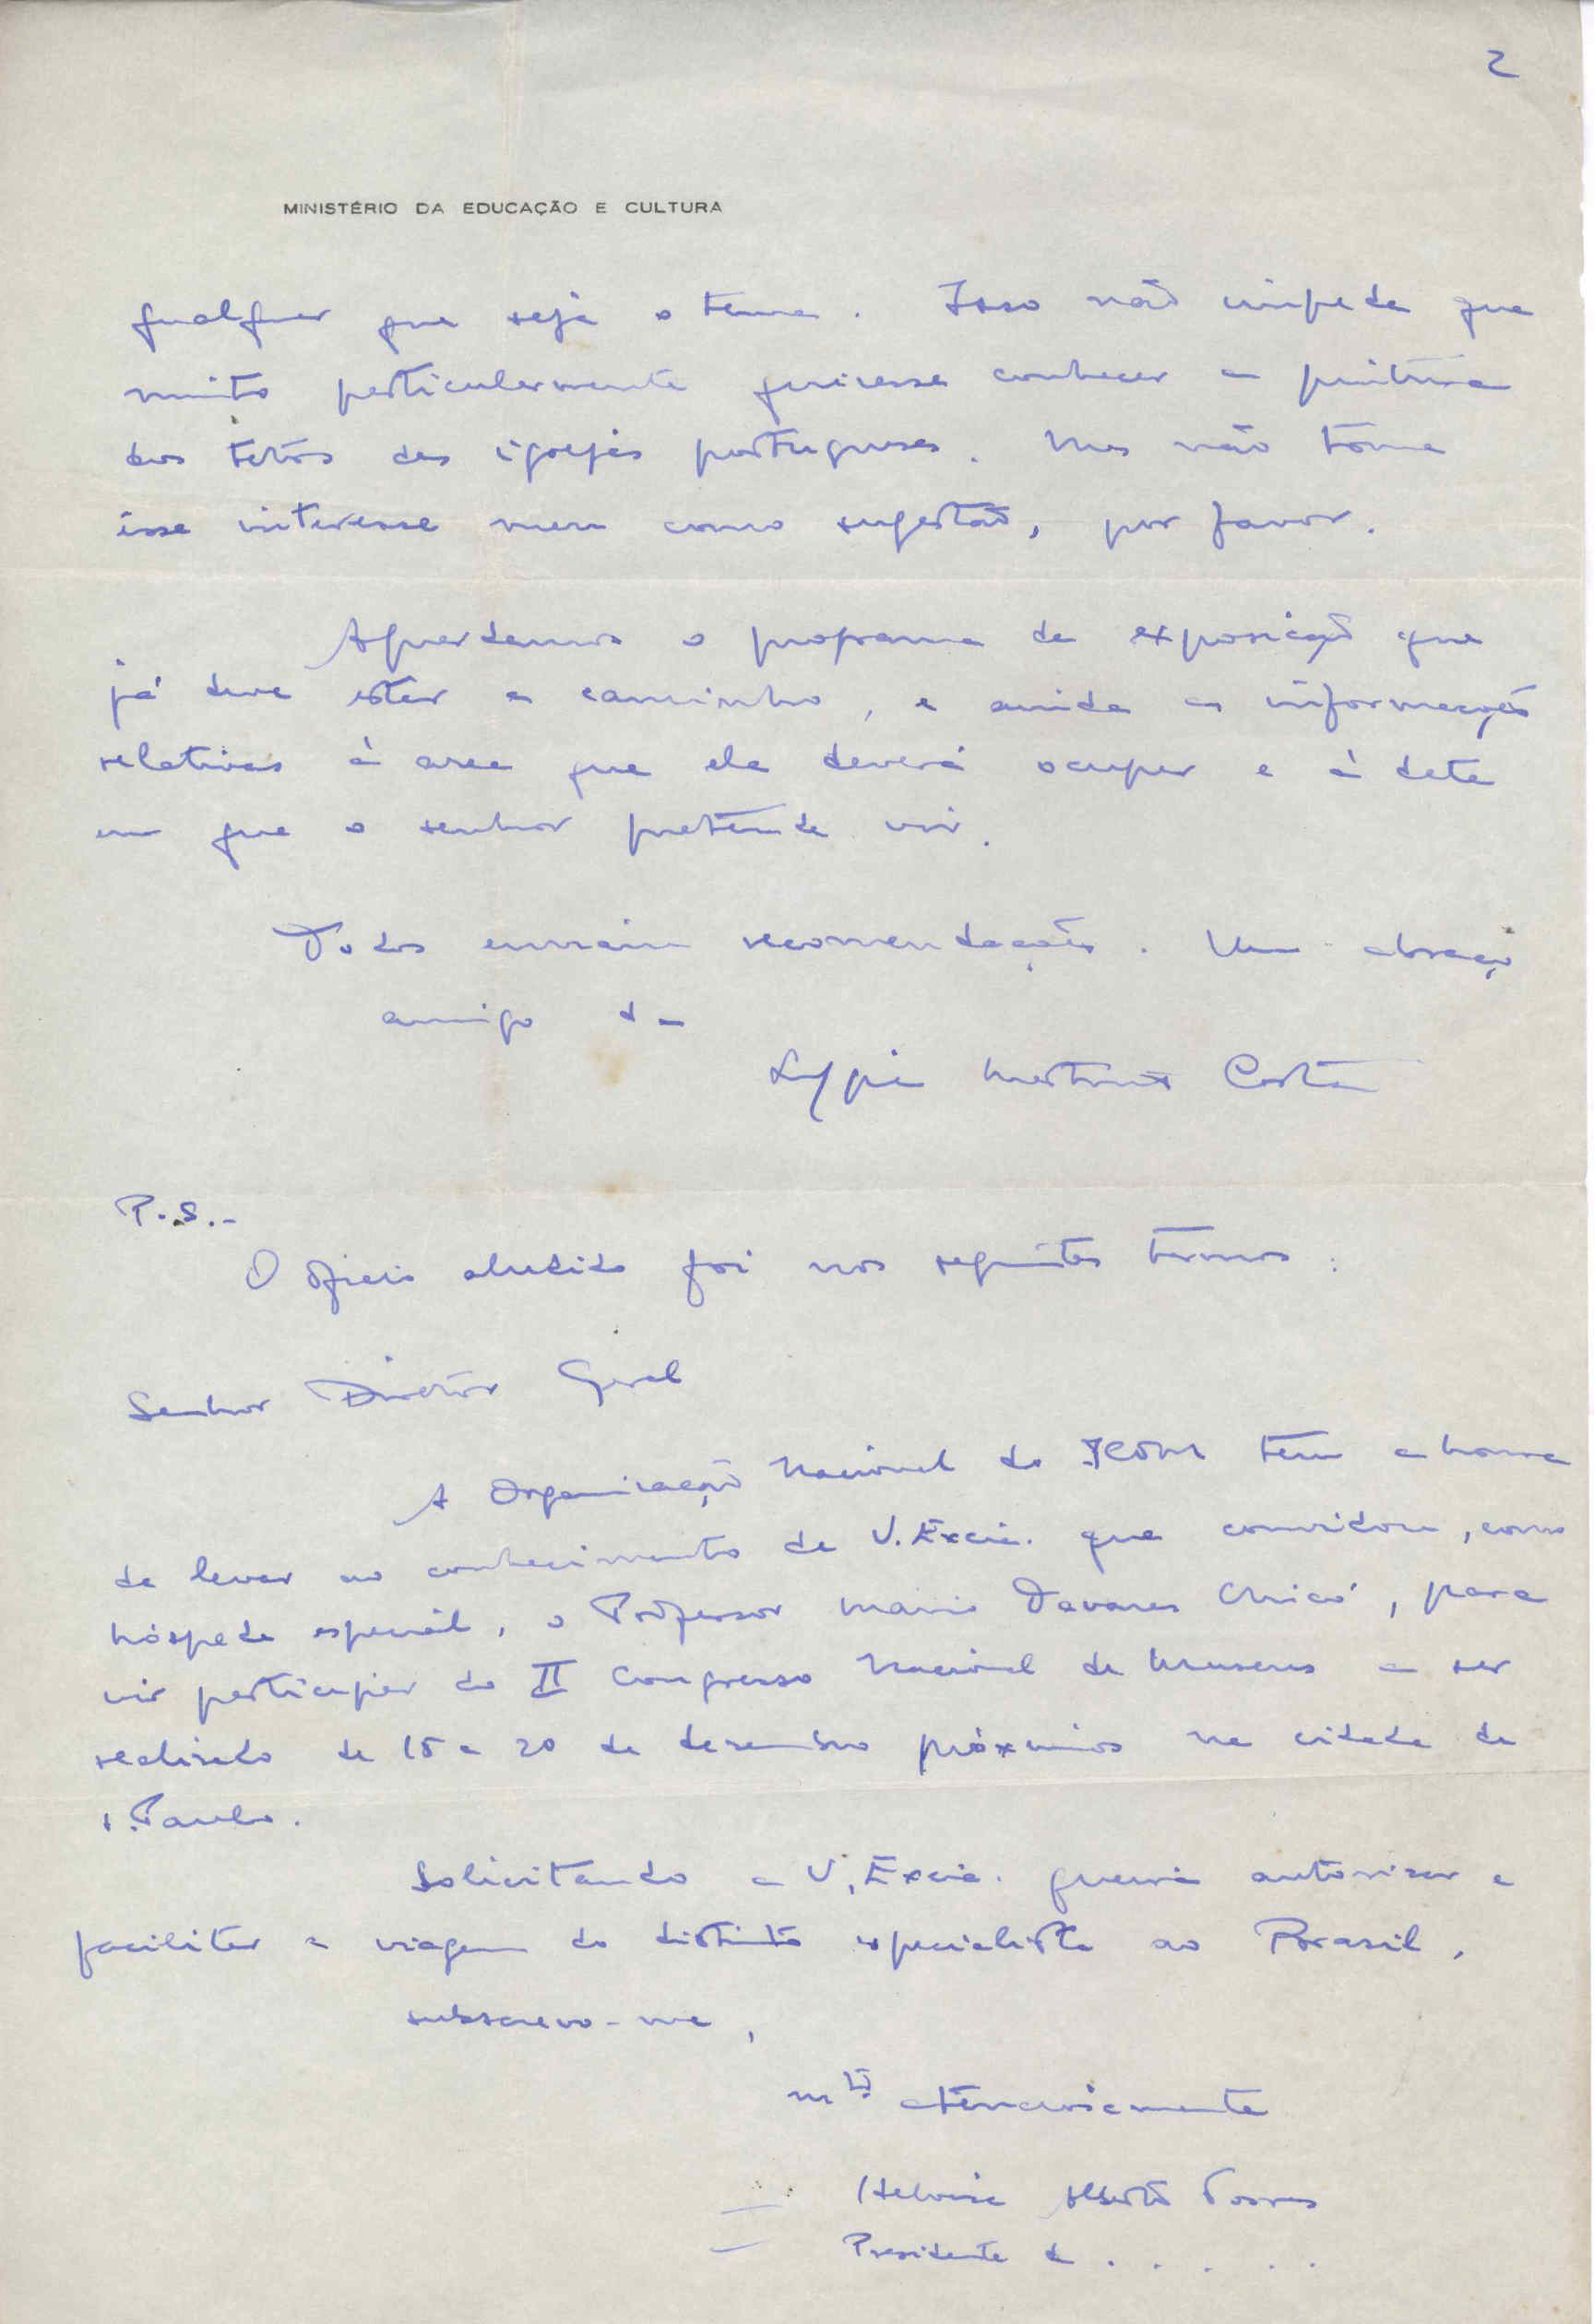 2
MINISTÉRIO DA EDUCAÇÃO E CULTURA
qualquer que seja o tema. Isso não impede que
muito particularmente quisesse conhecer a pintura
dos tetos das igrejas portuguesas. Mas não tome
êsse interesse meu como sugestão, por favor.
Aguardamos o programa da exposição que
já deve estar a caminho, e ainda as informações
relativas à area que ela deverá ocupar e à data
em que o senhor pretende vir.
Todos enviam recomendações. Um abraço
amigo da
Lygia Martins Costa
P.S.-
O ofício aludido foi nos seguintes termos:
Senhor Diretor Geral
A Organização Nacional do ICOM tem a honra
de levar ao conhecimento de V. Excia. que convidou, como
hóspede especial, o Professor Mario Tavares Chicó, para
vir participar do II Congresso Nacional de Museus a ser
realizado de 15 a 20 de dezembro próximo na cidade de
S. Paulo.
Solicitando a V. Excia. queira autorizar e
facilitar a viagem do distinto especialista ao Brasil,
subscrevo-me,
mtº atenciosamente
Heloisa Alberto Torres
Presidente d . . . . .